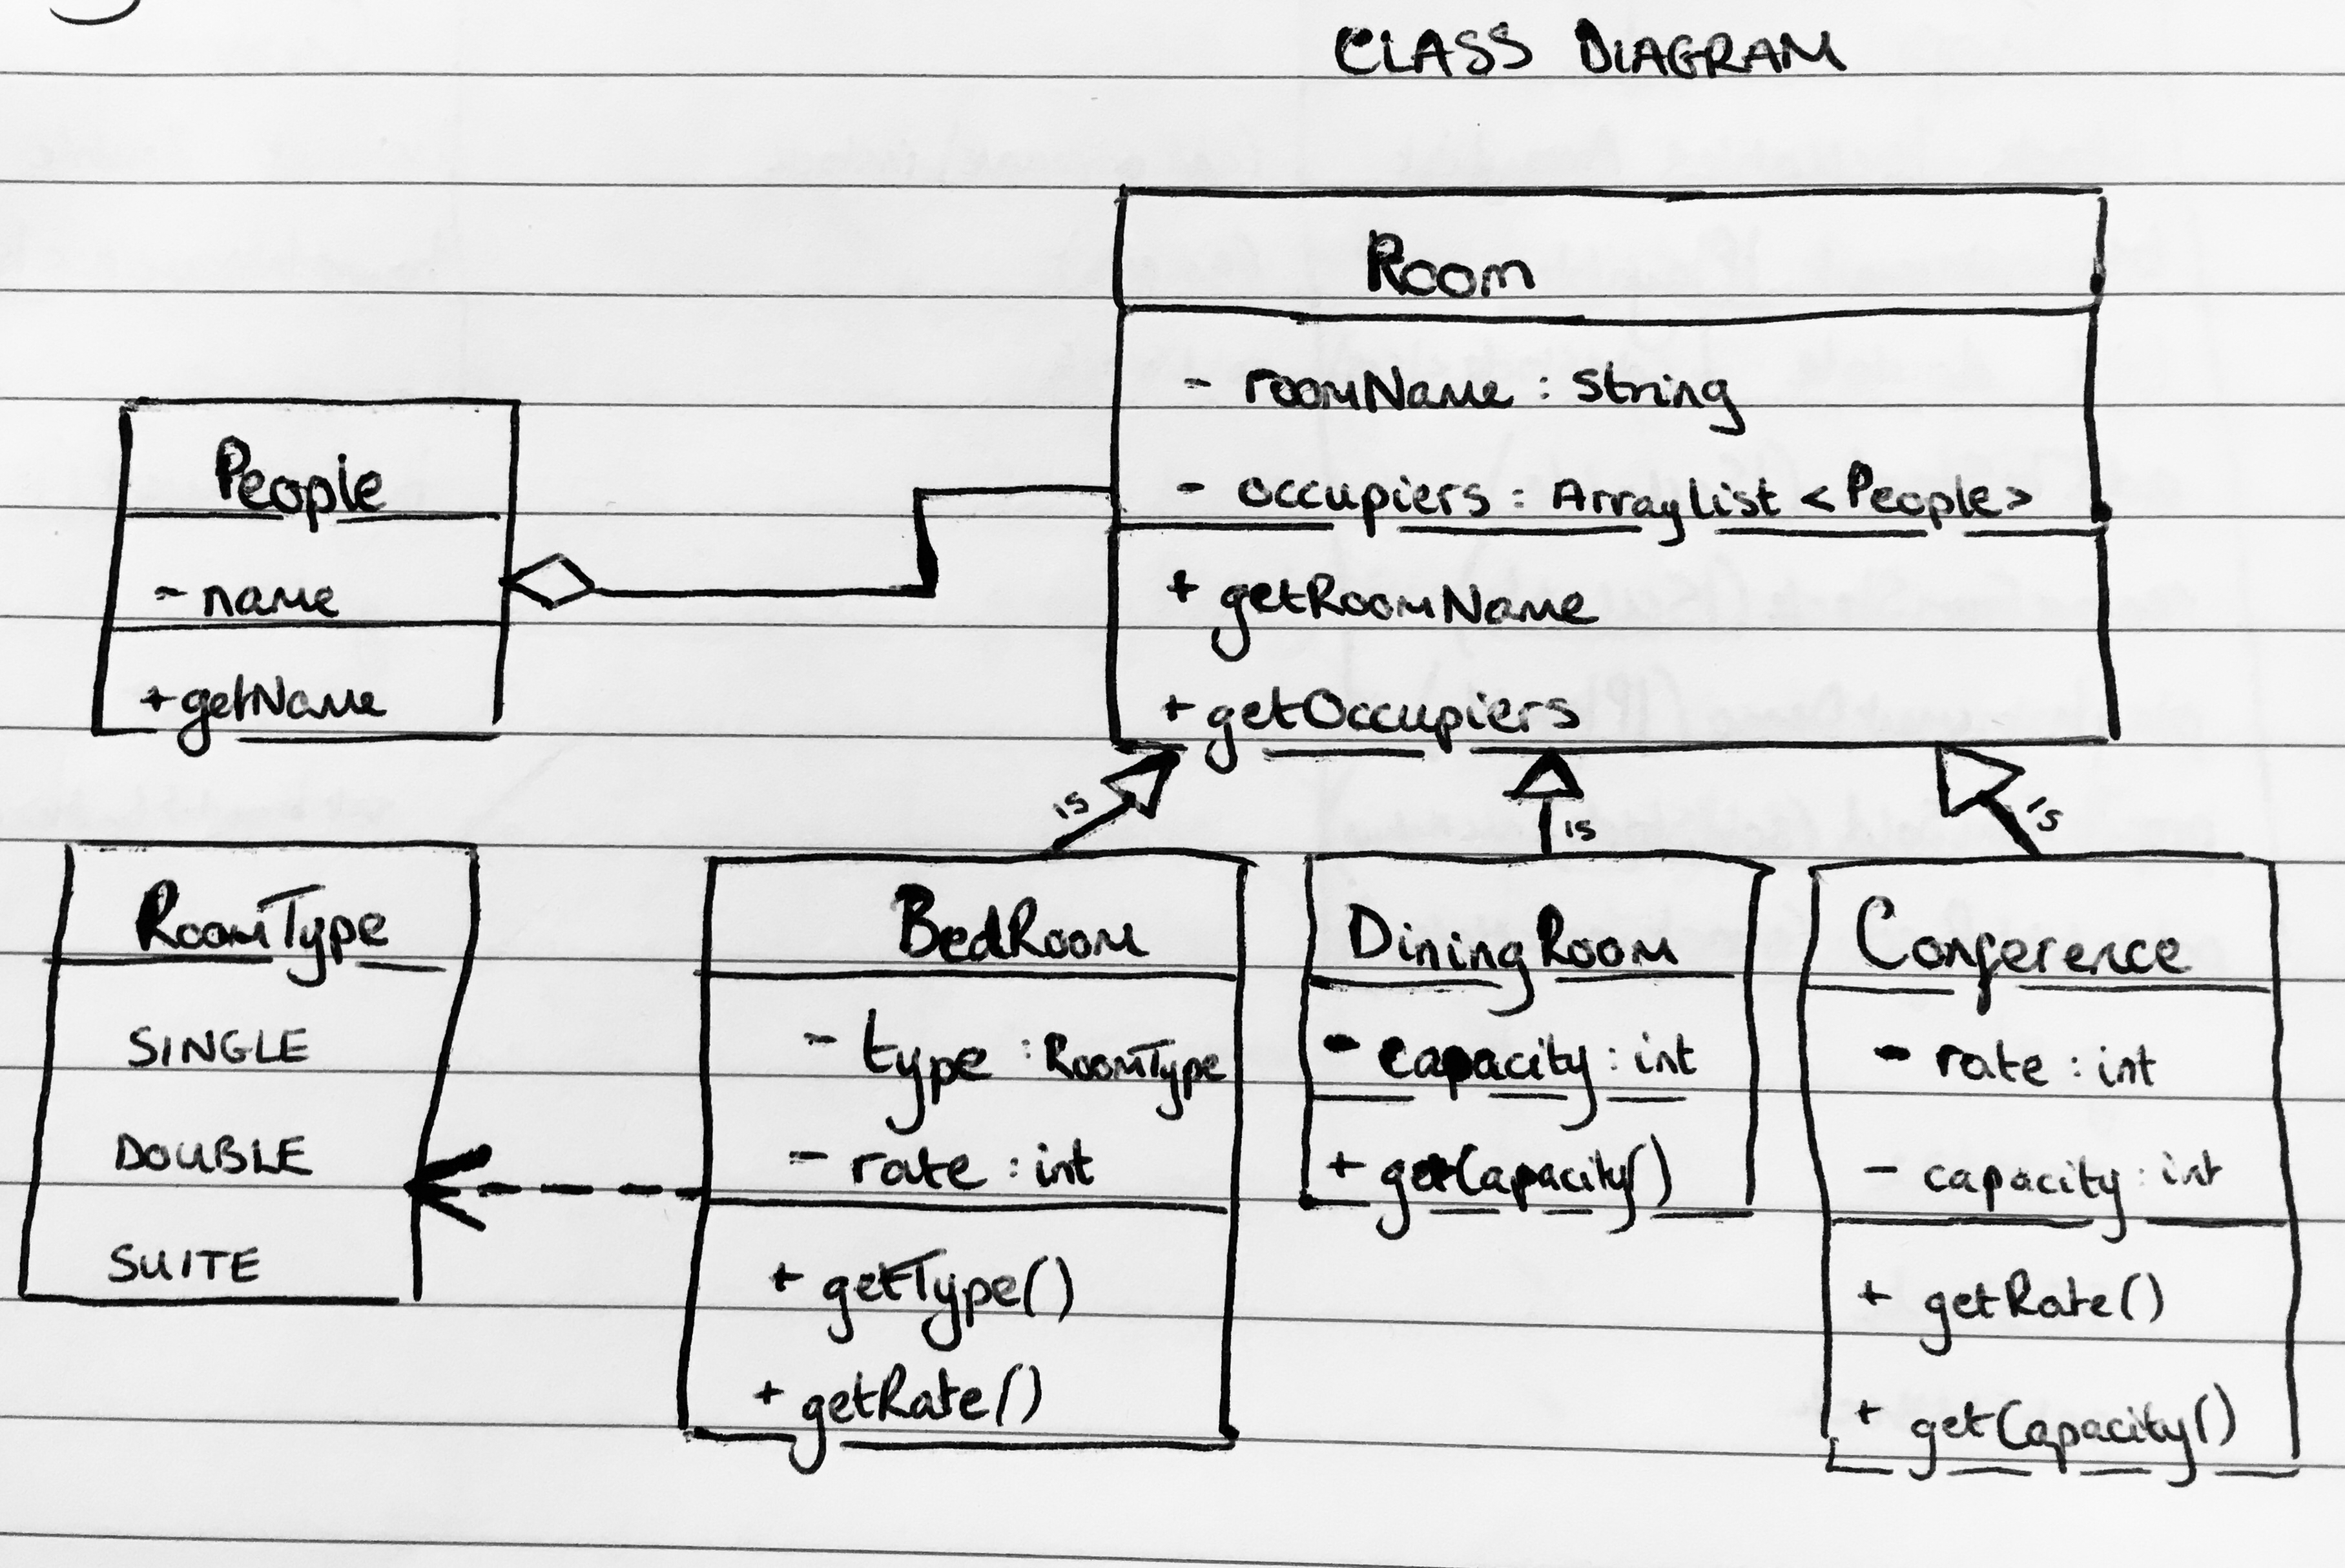 CLASS DIAGRAM
Room
- roomName : string
- occupiers : ArrayList <People>
+ getRoomName
+ getOccupiers
People
- name
+ getName
is
is
is
RoomType
SINGLE
DOUBLE
SUITE
BedRoom
- type : RoomType
- rate : int
+ getType()
+ getRate()
DiningRoom
- capacity : int
+ getCapacity()
Conference
- rate : int
- capacity : int
+ getRate()
+ getCapacity()